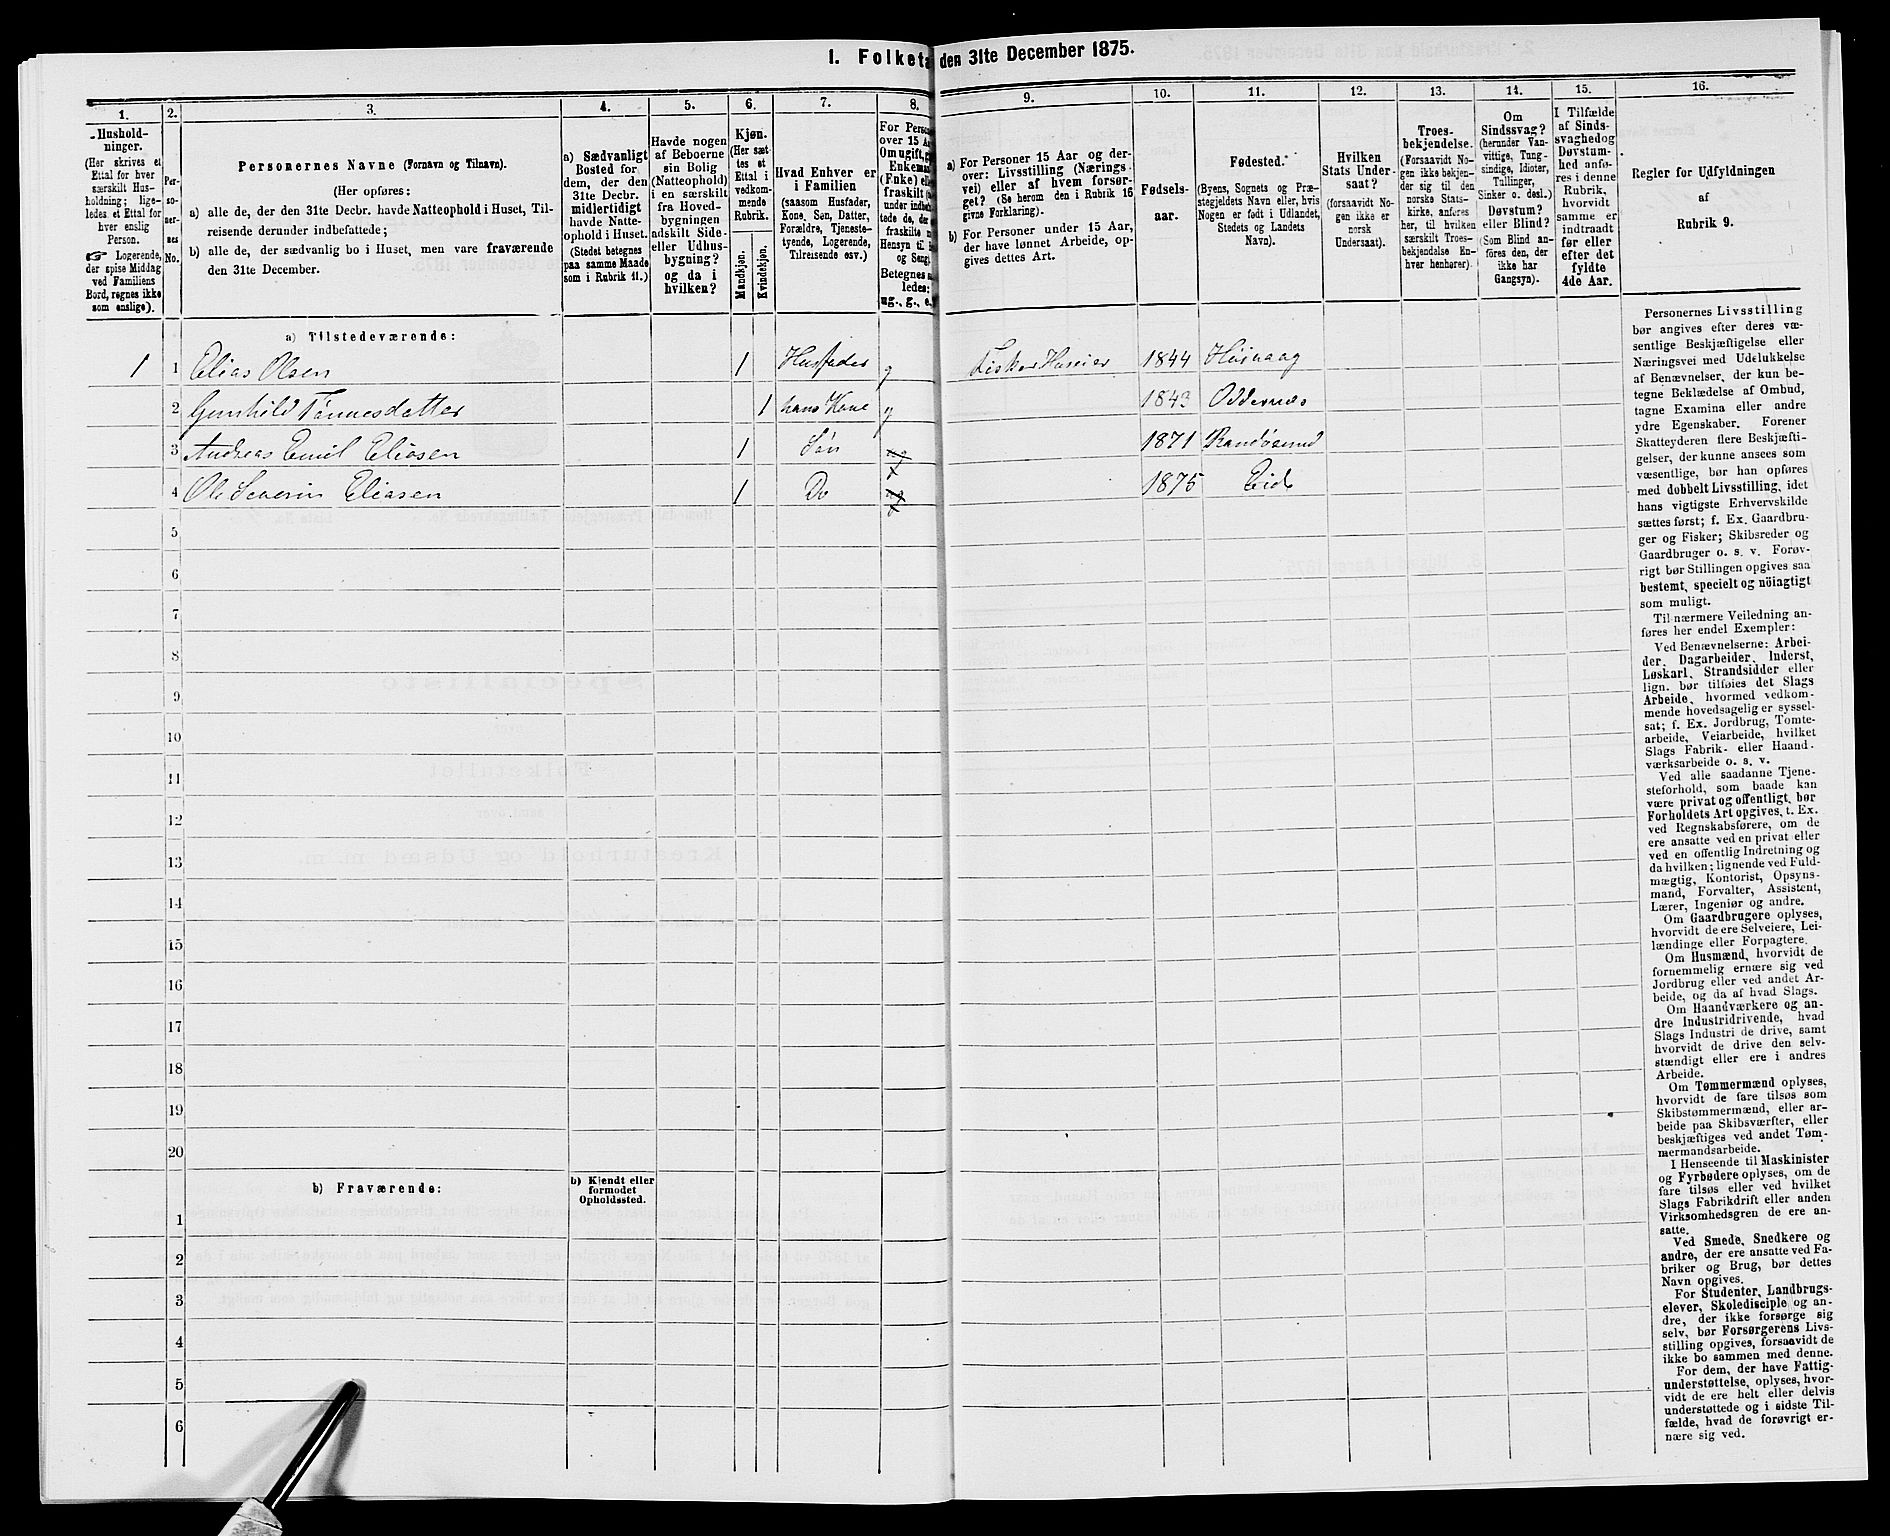 I. Folketa den 31te December 1875.
1. 2. 3. 4. 5. 6. 7. 8. 9. 10. 11. 12. 13. 14. 15. 16.
Hushold-
ninger.
(Her skrives et
Ettal for hver
særskilt Hus-
holdning; lige-
ledes et Ettal for
hver enslig
Person.
Logerende,
der spise Middag
ved Familiens
Bord, regnes ikke
som enslige).
Per-
soner-
nes
No.
Personernes Navne (Fornavn og Tilnavn).
(Her opføres:
a) alle de, der den 31te Decbr. havde Natteophold i Huset, Til-
reisende derunder indbefattede;
b) alle de, der sædvanlig bo i Huset, men vare fraværende
den 31te December.
a) Sædvanligt
Bosted for
dem, der den
31te Decbr.
midlertidigt
havde Natte-
ophold i Huset.
(Stedet betegnes
paa samme Maade
som i Rubrik 11.)
Havde nogen
af Beboerne
sin Bolig
(Natteophold)
i en særskilt
fra Hoved-
bygningen
adskilt Side-
eller Udhus-
bygning?
og da i
hvilken?
Kjøn.
(Her sæt-
tes et
Ettal i
vedkom-
mende
Rubrik.
Mandkjøn.
Kvindekjøn.
Hvad Enhver er
i Familien
(saasom Husfader,
Kone, Søn, Datter,
Forældre, Tjeneste-
tyende, Logerende,
Tilreisende osv.)
For Perso
over 15 Aa
Om ugift, g
Enkeman
(Enke) ell
fraskilt
under indbe
tede de, der
fraskilte
Hensyn til
og Seng
Betegnes s
ledes:
ug., g., e.
a) For Personer 15 Aar og der-
over: Livsstilling (Nærings-
vei) eller af hvem forsør-
get? (Se herom den i Rubrik 16
givne Forklaring).
b) For Personer under 15 Aar,
der have lønnet Arbeide, op-
gives dettes Art.
Fødsels-
aar.
Fødested.
(Byens, Sognets og Præ-
stegjeldets Navn eller, hvis
Nogen er født i Udlandet,
Stedets og Landets
Navn).
Hvilken
Stats Under-
saat?
(forsaavidt No-
gen ikke er
norsk
Undersaat).
Troes-
bekjendelse.
(Forsaavidt No-
gen ikke bekjen-
der sig til den
norske Stats-
kirke, anføres
her, til hvilken
særskilt Troes-
bekjendelse En-
hver henhører).
Om
Sindssvag?
(herunder Van-
vittige, Tung-
sindige, Idioter,
Tullinger,
Sinker o. desl.)
Døvstum?
eller Blind?
(Som Blind an-
føres den, der
ikke har
Gangsyn).
I Tilfælde
af Sinds-
svaghed og
Døvstum-
hed anfø-
res i denne
Rubrik,
hvorvidt
samme er
indtraadt
før eller
efter det
fyldte
4de Aar.
Regler for Udfyldningen
af
Rubrik 9.
a) Tilstedeværende:
1 1 Elias Olsen 1 Husfader g Fisker Huseier 1844 Høivaag
2 Gunhild Tønnesdatter 1 hans Kone g 1843 Oddernes
3 Andreas Emil Eliasen 1 Søn ug 1871 Randøsund
4 Ole Severin Eliasen 1 Do ug 1875 Eide
5
6
7
8
9
10
11
12
13
14
15
16
17
18
19
20
b) Fraværende:
b) Kjendt eller
formodet
Opholdssted.
1
2
3
4
5
6
Personernes Livsstilling
bør angives efter deres væ-
sentlige Beskjæftigelse eller
Næringsvei med Udelukkelse
af Benævnelser, der kun be-
tegne Beklædelse af Ombud,
tagne Examina eller andre
ydre Egenskaber. Forener
Skatteyderen flere Beskjæfti-
gelser, der kunne ansees som
væsentlige, bør han opføres
med dobbelt Livsstilling, idet
hans vigtigste Erhvervskilde
sættes først; f. Ex. Gaardbru-
ger og Fisker; Skibsreder og
Gaardbruger o. s. v. Forøv-
rigt bør Stillingen opgives saa
bestemt, specielt og nöiagtigt
som muligt.
Til nærmere Veiledning an-
føres her endel Exempler:
Ved Benævnelserne: Arbei-
der, Dagarbeider, Inderst,
Løskarl, Strandsidder eller
lign. bør tilføies det Slags
Arbeide, hvormed vedkom-
mende hovedsagelig er syssel-
sat; f. Ex. Jordbrug, Tomte-
arbeide, Veiarbeide, hvilket
Slags Fabrik- eller Haand-
værksarbeide o. s. v.
Ved alle saadanne Tjene-
steforhold, som baade kan
være privat og offentligt, bør
Forholdets Art opgives, t. Ex.
ved Regnskabsførere, om de
ere ansatte ved en privat eller
ved en offentlig Indretning og
da hvilken; lignende ved Fuld-
mægtig, Kontorist, Opsyns-
mand, Forvalter, Assistent,
Lærer, Ingeniør og andre.
Om Gaardbrugere oplyses,
hvorvidt de ere Selveiere, Lei-
lændinge eller Forpagtere.
Om Husmænd, hvorvidt de
fornemmelig ernære sig ved
Jordbrug eller ved andet Ar-
beide, og da af hvad Slags.
Om Haandværkere og an-
dre Industridrivende, hvad
Slags Industri de drive, samt
hvorvidt de drive den selv-
stændigt eller ere i andres
Arbeide.
Om Tømmermænd oplyses,
hvorvidt de fare tilsøs som
Skibstømmermænd, eller ar-
beide paa Skibsværfter, eller
beskjæftiges ved andet Tøm-
mermandsarbeide.
I Henseende til Maskinister
og Fyrbødere oplyses, om de
fare tilsøs eller ved hvilket
Slags Fabrikdrift eller anden
Virksomhedsgren de ere an-
satte.
Ved Smede, Snedkere og
andre, der ere ansatte ved Fa-
briker og Brug, bør dettes
Navn opgives.
For Studenter, Landbrugs-
elever, Skoledisciple og an-
dre, der ikke forsørge sig
selv, bør Forsørgerens Livs-
stilling opgives, forsaavidt de
ikke bo sammen med denne.
For dem, der have Fattig-
understøttelse, oplyses, hvor-
vidt de ere helt eller delvis
understøttede og i sidste Til-
fælde, hvad de forøvrigt er-
nære sig ved.